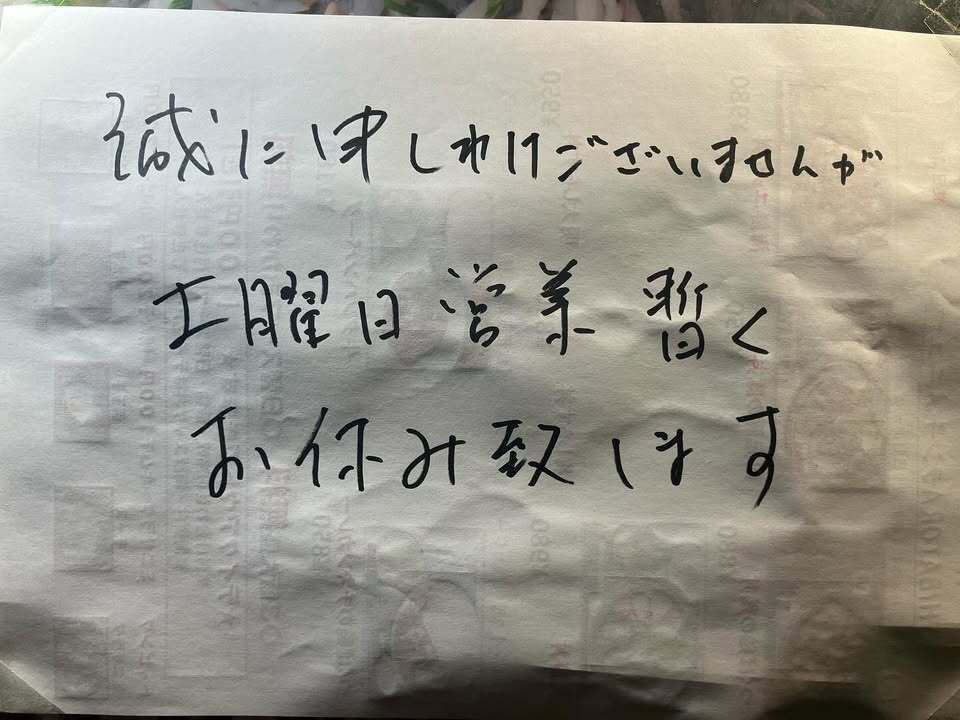 誠に申しわけございませんが
土曜日営業暫く
お休み致します